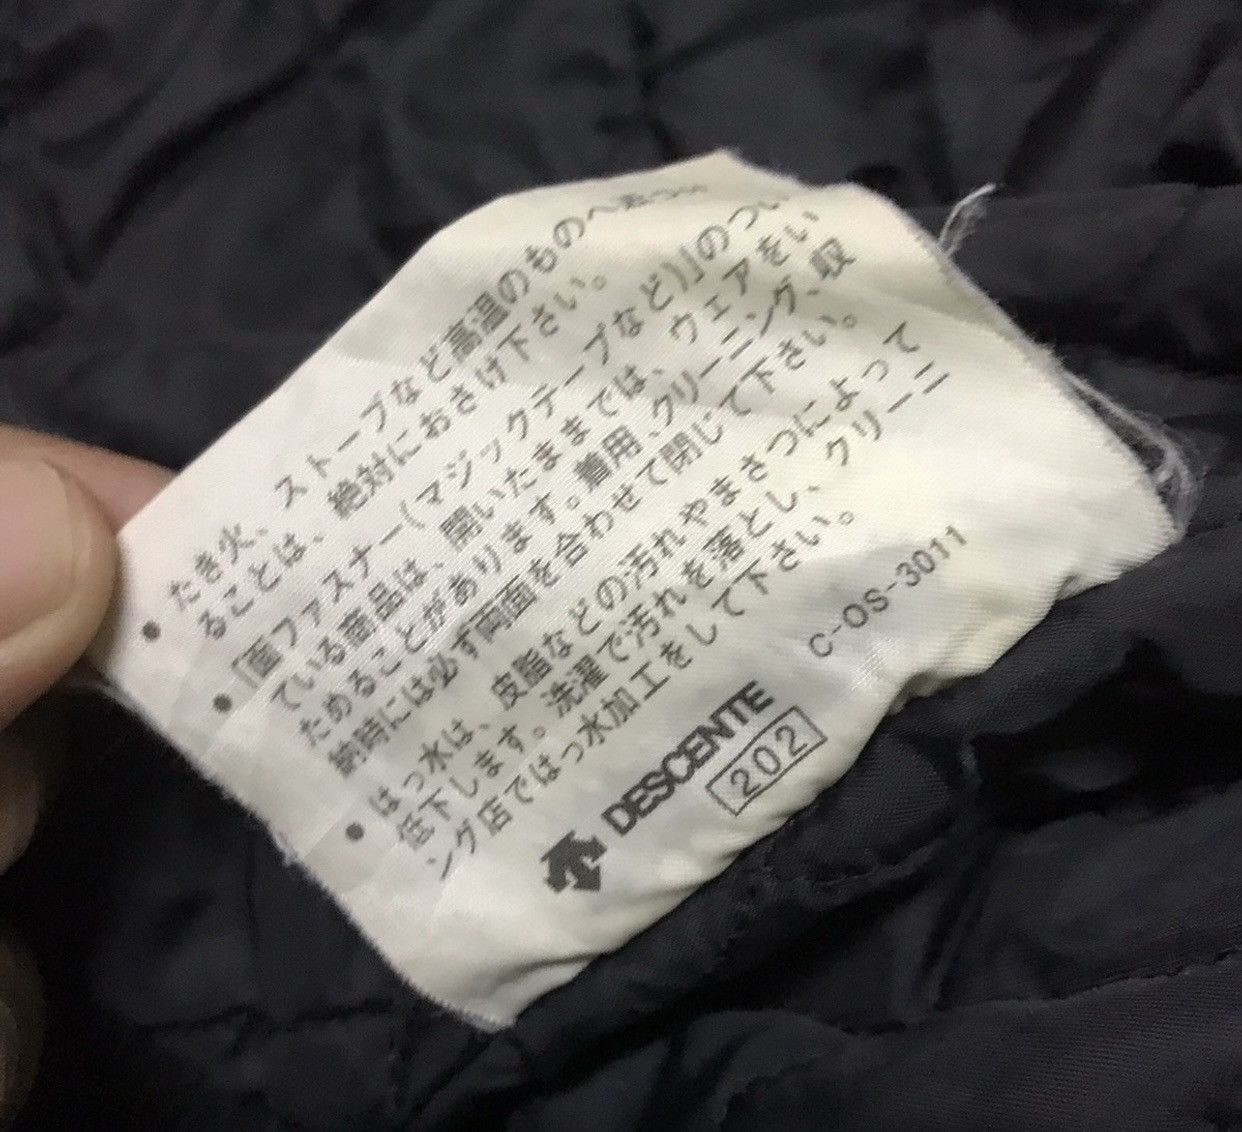 ● たき火、ストーブなど高温のものへ近づ
ることは、絶対におさけ下さい。
● 「面ファスナー(マジックテープなど)」のつい
ている商品は、開いたままでは、ウェアをい
ためることがあります。着用、クリーニング、収
納時には必ず両面を合わせて閉じて下さい。
● はっ水は、皮脂などの汚れやまさつによって
低下します。洗濯で汚れを落とし、クリーニ
ング店ではっ水加工をして下さい。
C-OS-3011
DESCENTE
202